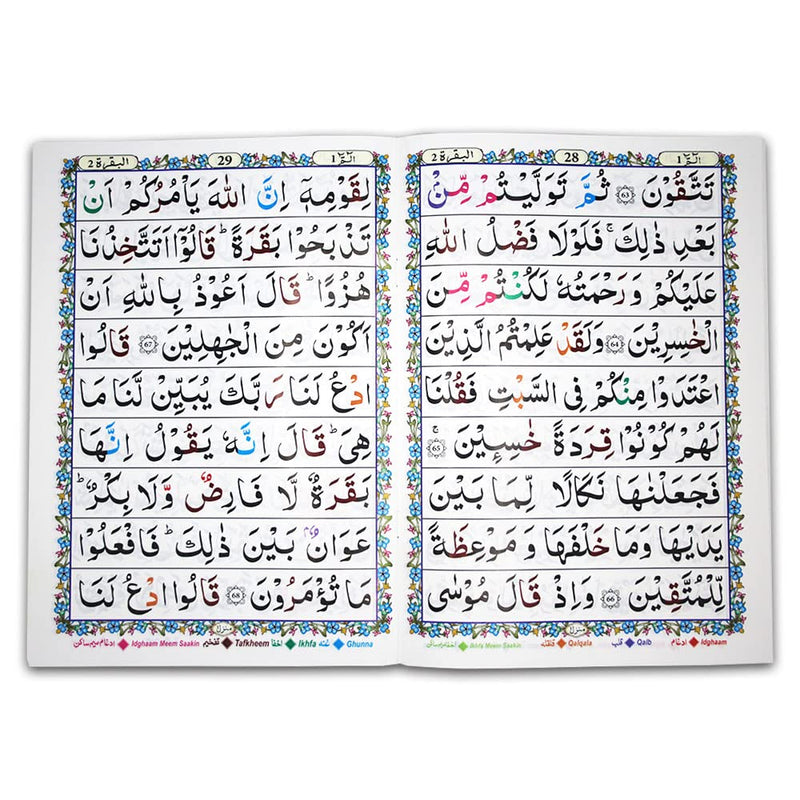 الٓمّٓ ١ 28 البقرة ٢
تَتَّقُوْنَ ﴿63﴾ ثُمَّ تَوَلَّيْتُمْ مِّنْۢ
بَعْدِ ذٰلِكَ ۚ فَلَوْلَا فَضْلُ اللّٰهِ
عَلَيْكُمْ وَرَحْمَتُهٗ لَكُنْتُمْ مِّنَ
الْخٰسِرِيْنَ ﴿64﴾ وَلَقَدْ عَلِمْتُمُ الَّذِيْنَ
اعْتَدَوْا مِنْكُمْ فِى السَّبْتِ فَقُلْنَا
لَهُمْ كُوْنُوْا قِرَدَةً خٰسِـِٕيْنَ ﴿65﴾ ۚ
فَجَعَلْنٰهَا نَكَالًا لِّمَا بَيْنَ
يَدَيْهَا وَمَا خَلْفَهَا وَ مَوْعِظَةً
لِّلْمُتَّقِيْنَ ﴿66﴾ وَاِذْ قَالَ مُوْسٰى
منزل
Idghaam ادغام Qalb قلب Qalqala قلقله Ikhfa Meem Saakin اخفا میم ساکن
الٓمّٓ ١ 29 البقرة ٢
لِقَوْمِهٖۤ اِنَّ اللّٰهَ يَاْمُرُكُمْ اَنْ
تَذْبَحُوْا بَقَرَةً ؕ قَالُوْۤا اَتَتَّخِذُنَا
هُزُوًا ؕ قَالَ اَعُوْذُ بِاللّٰهِ اَنْ
اَكُوْنَ مِنَ الْجٰهِلِيْنَ ﴿67﴾ قَالُوا
ادْعُ لَنَا رَبَّكَ يُبَيِّنْ لَّنَا مَا
هِىَ ؕ قَالَ اِنَّهٗ يَقُوْلُ اِنَّهَا
بَقَرَةٌ لَّا فَارِضٌ وَّلَا بِكْرٌ ؕ
عَوَانٌۢ بَيْنَ ذٰلِكَ ؕ فَافْعَلُوْا
مَا تُؤْمَرُوْنَ ﴿68﴾ قَالُوا ادْعُ لَنَا
منزل
Ghunna غنه Ikhfa اخفا Tafkheem تفخیم Idghaam Meem Saakin ادغام میم ساکن